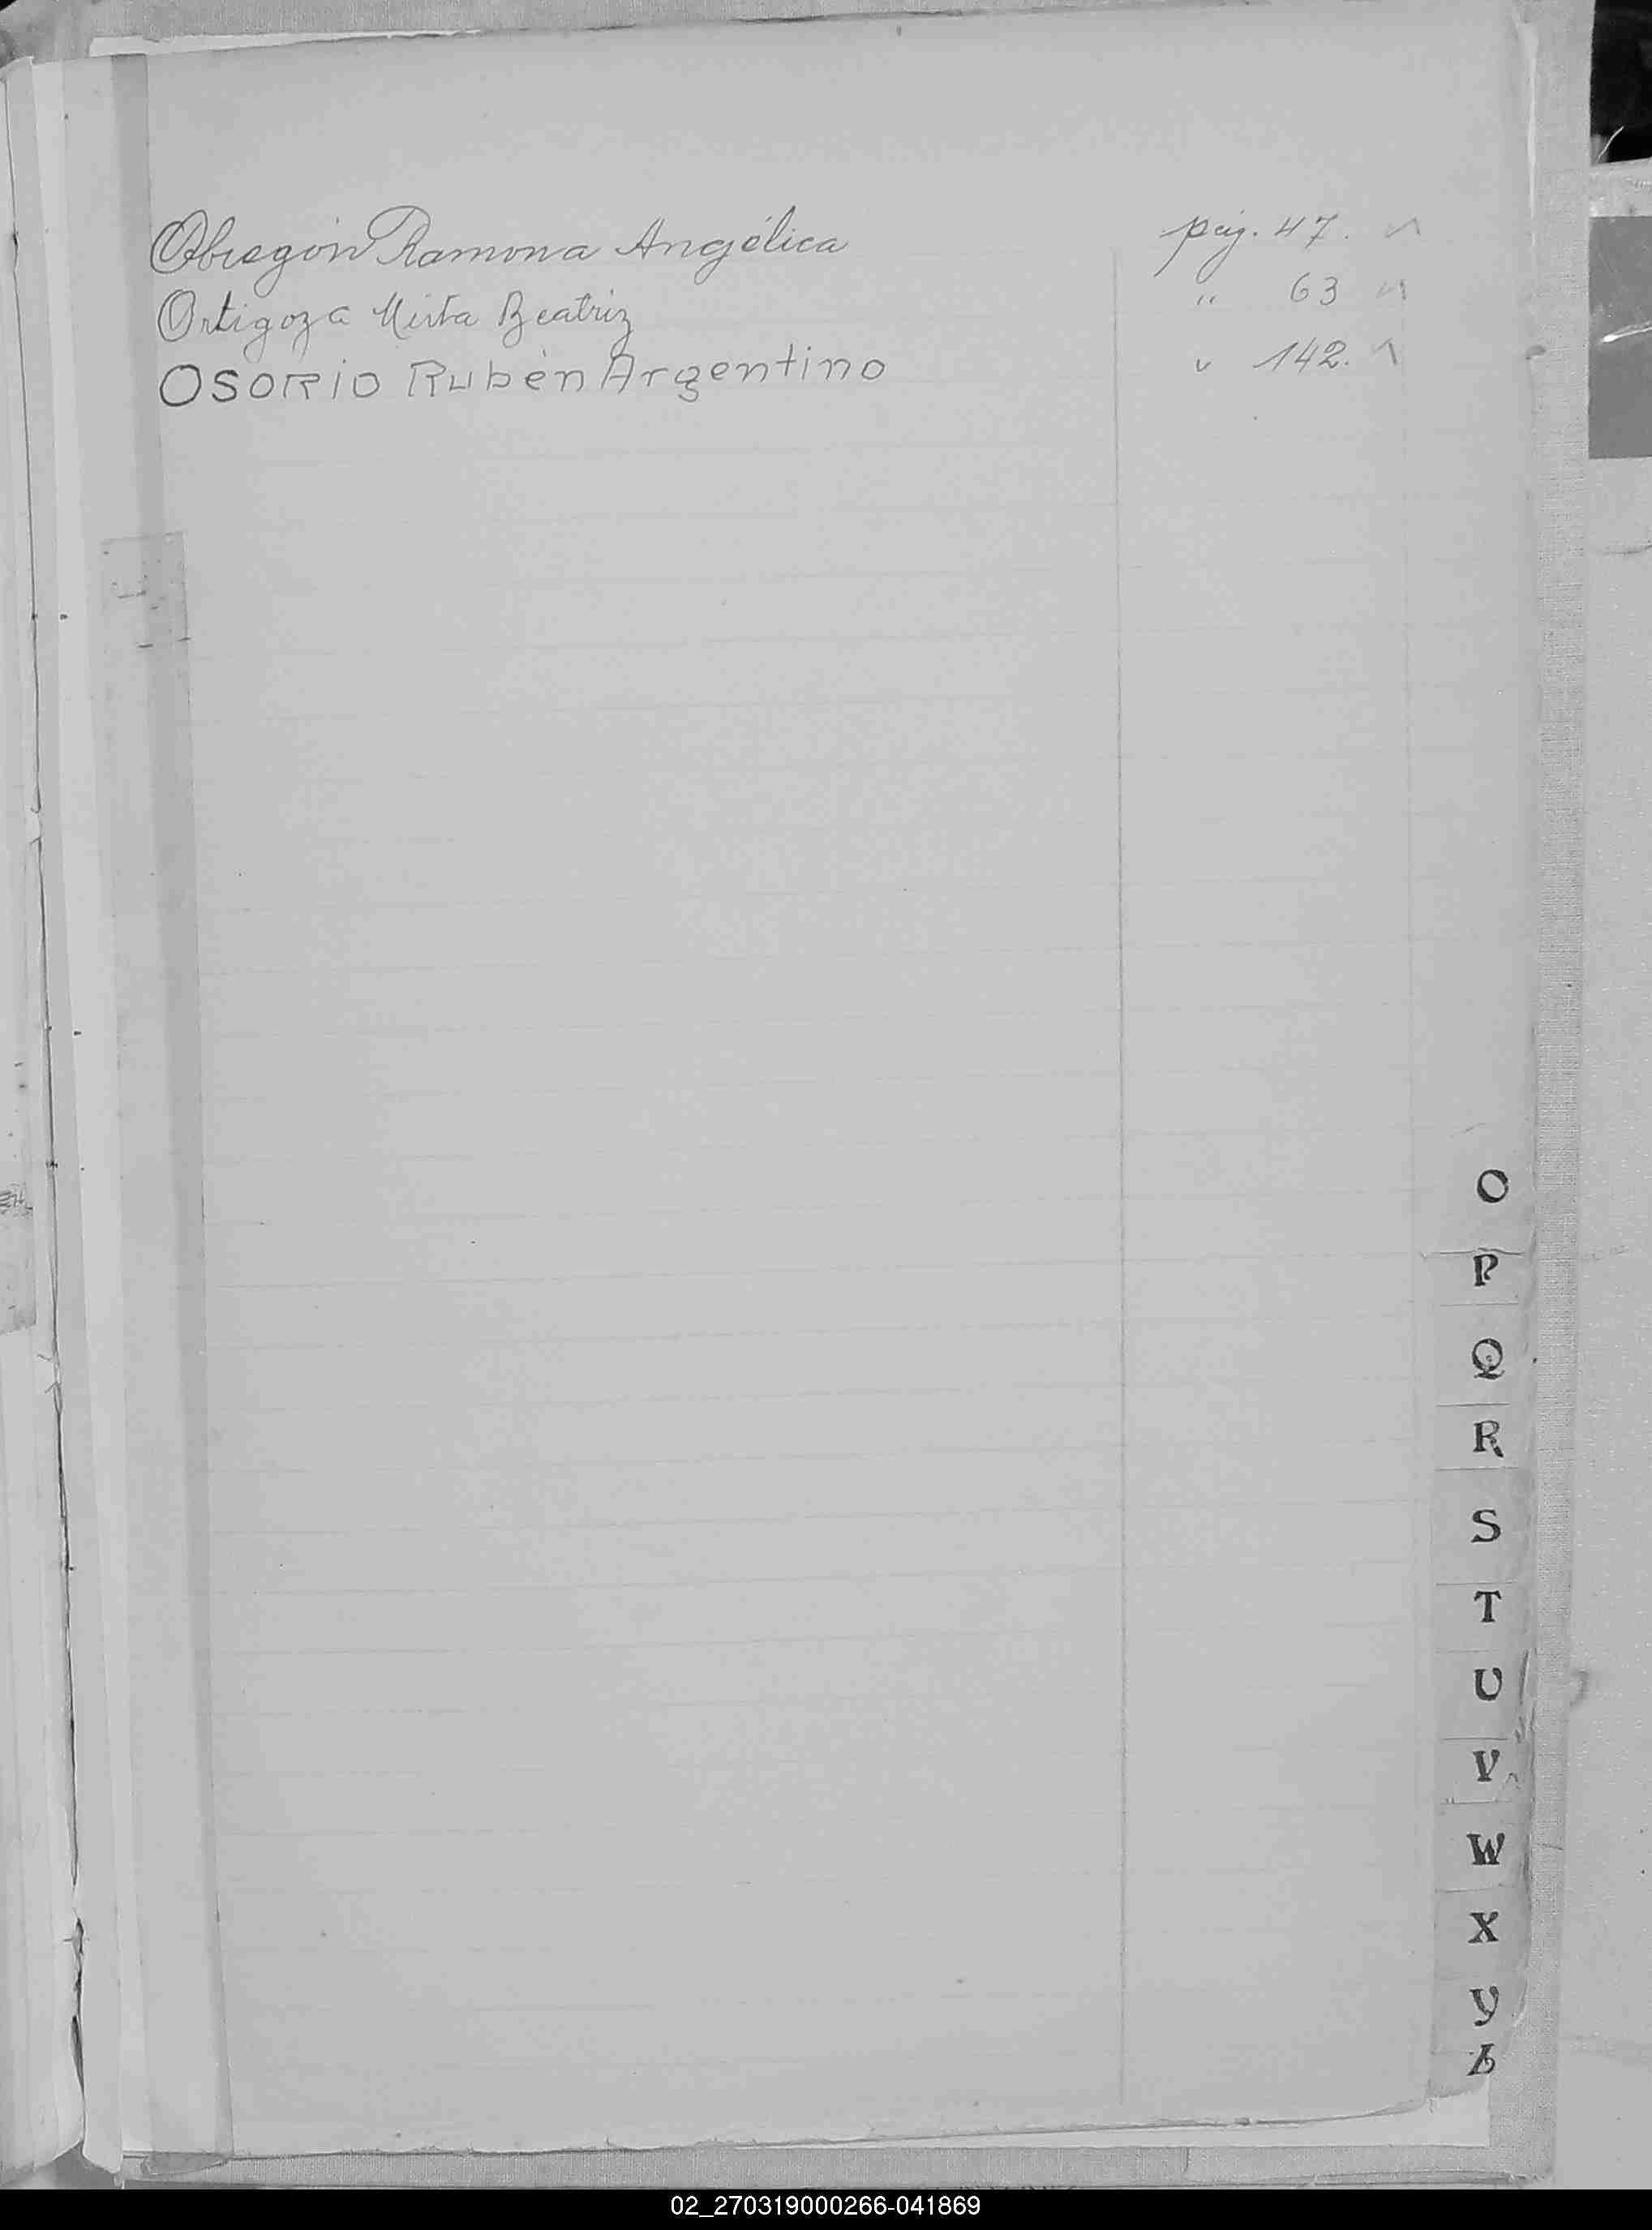 Obregón Ramona Angélica pág. 47.
Ortigoza Mirta Beatriz " 63
OSORIO Rubén Argentino " 142.
O
P
Q
R
S
T
U
V
W
X
Y
Z
02_270319000266-041869